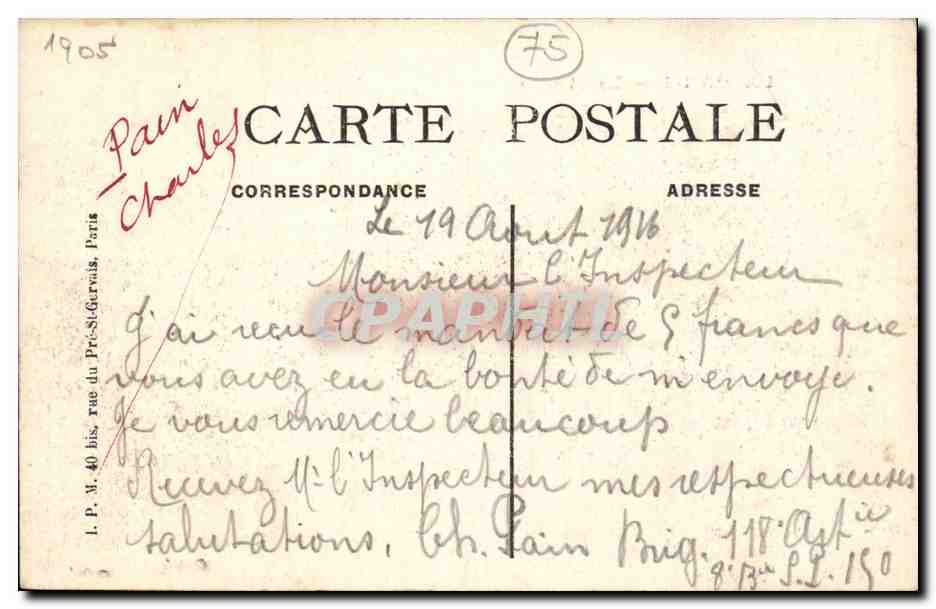 1905
75
Pain
Charles
CARTE POSTALE
CORRESPONDANCE
ADRESSE
Le 19 Aout 1916
Monsieur l'Inspecteur
J'ai recu le mandat de 5 francs que
vous avez eu la bonté de m'envoye.
Je vous remercie beaucoup
Recevez Mr l'Inspecteur mes respectueuses
salutations, Ch. Pain Brig. 118e Artie
8e Bie S.P. 150
I. P. M. 40 bis, rue du Pré-St-Gervais, Paris
CPAPHTI